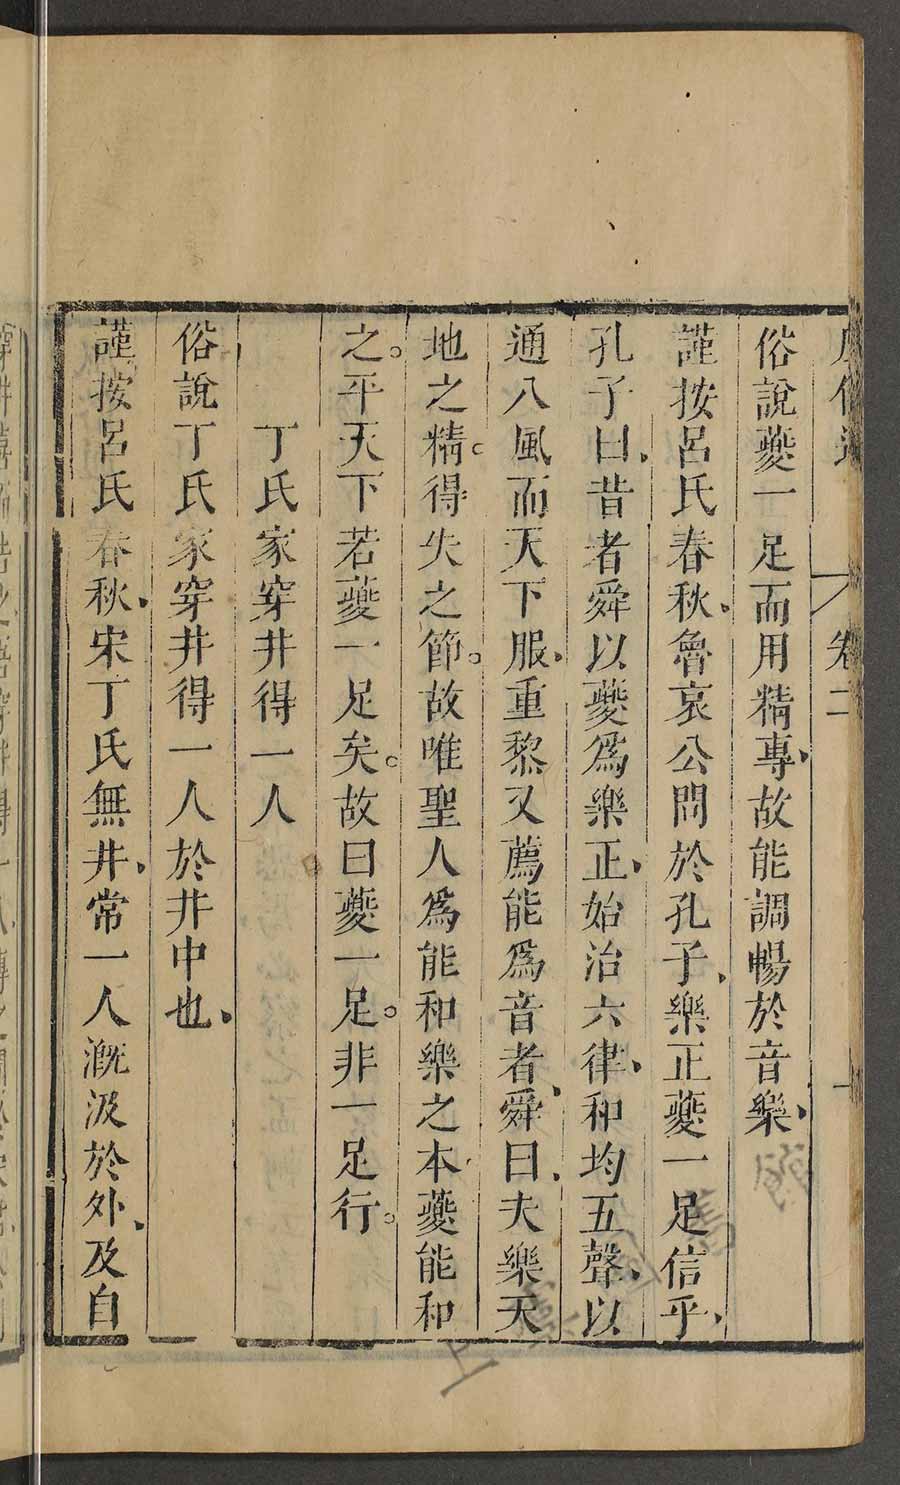 卷二
俗說夔一足而用精專故能調暢於音樂
謹按呂氏春秋魯哀公問於孔子樂正夔一足信乎
孔子曰昔者舜以夔爲樂正始治六律和均五聲以
通八風而天下服重黎又薦能爲音者舜曰夫樂天
地之精得失之節故唯聖人爲能和樂之本夔能和
之平天下若夔一足矣故曰夔一足非一足行
丁氏家穿井得一人
俗說丁氏家穿井得一人於井中也
謹按呂氏春秋宋丁氏無井常一人溉汲於外及自